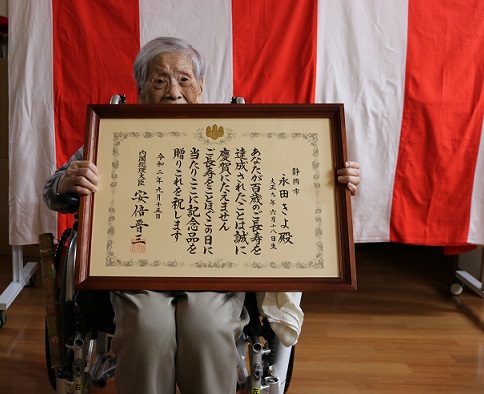 静岡市
永田きよ殿
大正九年六月十八日生
あなたが百歳のご長寿を
達成されたことは誠に
慶賀にたえません
ご長寿をことほぐこの日に
当たりここに記念品を
贈りこれを祝します
令和二年九月十五日
内閣総理大臣 安倍晋三